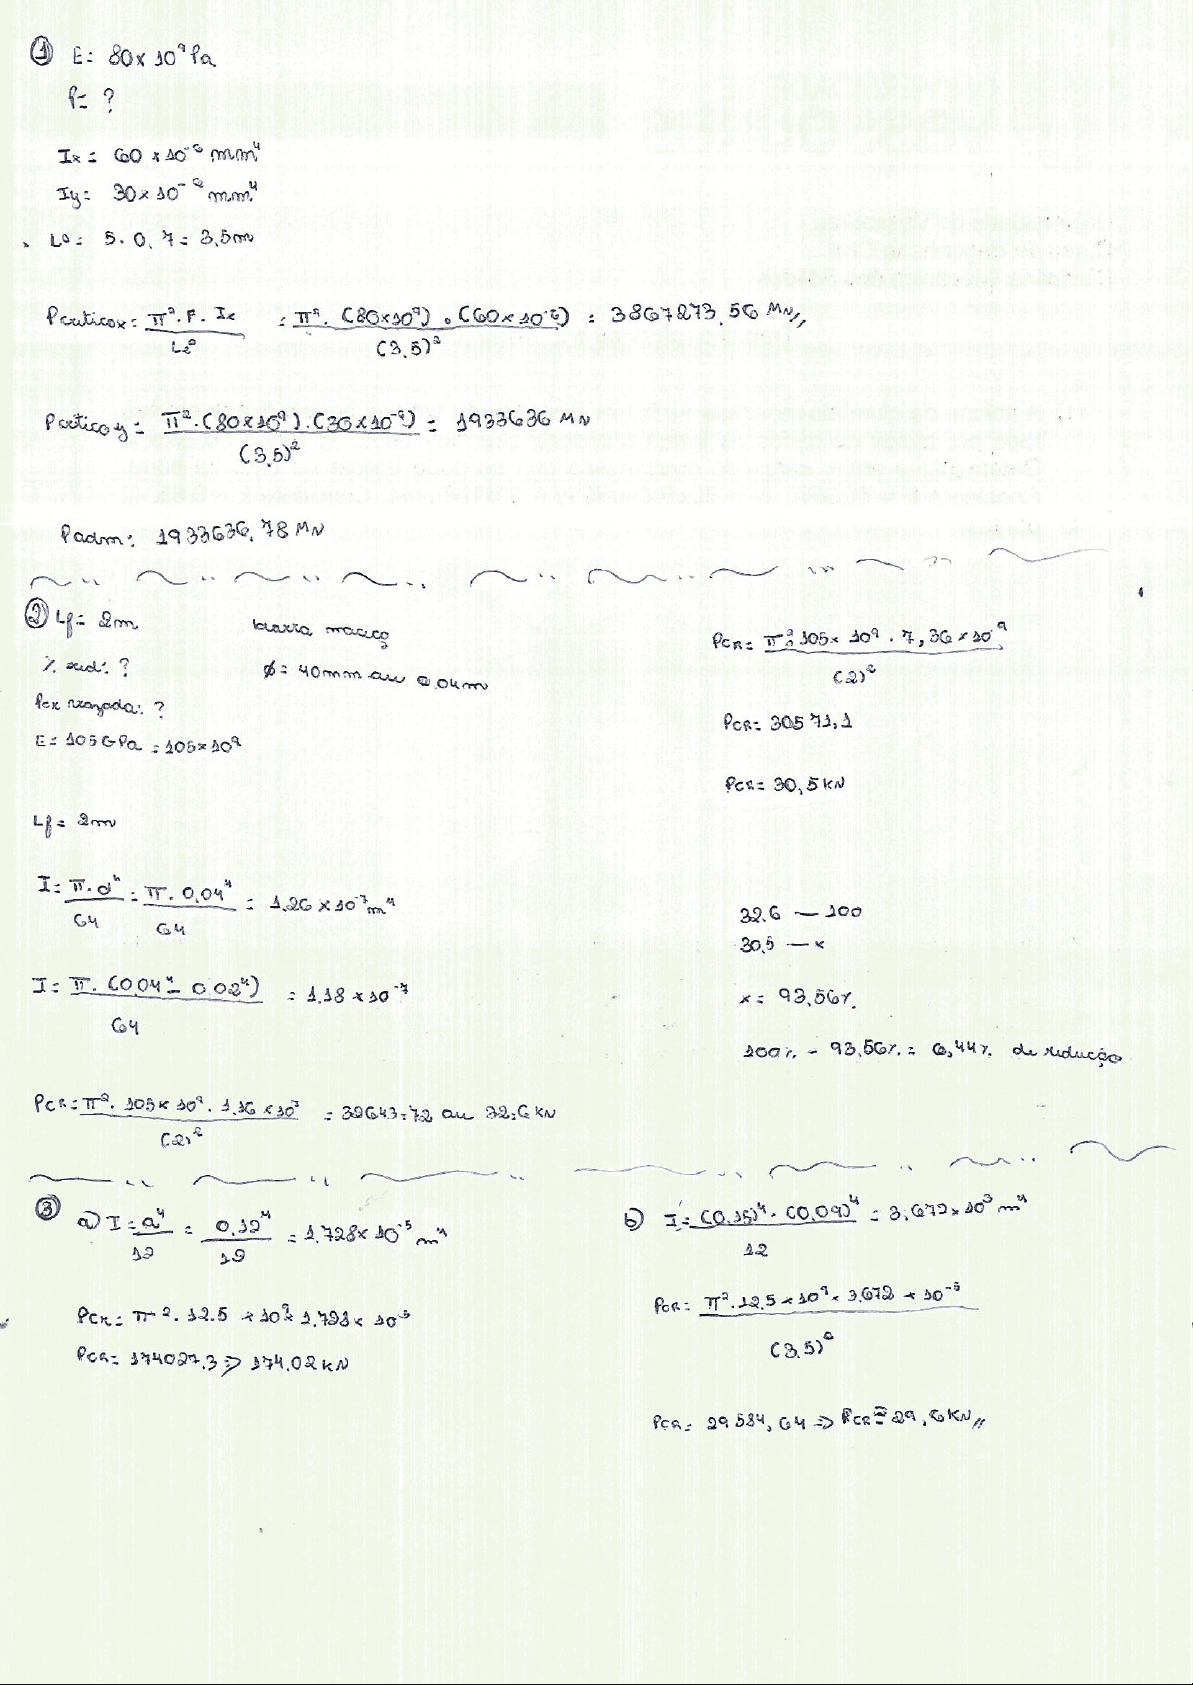 ① E= 80x 10⁹ Pa
P= ?
Ix = 60 x 10⁻⁶ mm⁴
Iy = 30 x 10⁻⁶ mm⁴
Lº = 5 . 0,7 = 3,5m
Pcriticox = π² . E . Ix / Lº² = π² . (80x10⁹) . (60x10⁻⁶) / (3,5)² = 3867273,56 MN//
Pcriticoy = π² . (80x10⁹) . (30x10⁻⁶) / (3,5)² = 1933636 MN
Padm: 1933636,78 MN
② Lf = 2m
barra maciça
% red: ?
ø = 40mm ou 0,04m
Pcr vazada: ?
E = 105 GPa = 105x10⁹
Lf = 2m
I = π . d⁴ / 64 = π . 0,04⁴ / 64 = 1,26 x 10⁻⁷ m⁴
I = π . (0,04⁴ - 0,02⁴) / 64 = 1,18 x 10⁻⁷
PCR = π² . 105x 10⁹ . 1,26 x 10⁷ / (2)² = 32643,72 ou 32,6 KN
PCR = π² . 105x 10⁹ . 7,36 x 10⁻⁹ / (2)²
PCR = 30571,1
PCR = 30,5 KN
32,6 — 100
30,5 — x
x = 93,56%
100% - 93,56% = 6,44% de redução
③ a) I = a⁴ / 12 = 0,12⁴ / 12 = 1,728x 10⁻⁵ m⁴
PCR = π² . 12,5 x 10⁹ x 1,728 x 10⁻⁵
PCR = 174027,3 => 174,02 KN
b) I = (0,15)⁴ - (0,09)⁴ / 12 = 3,672 x 10³ m⁴
PCR = π² . 12,5 x 10⁹ x 3,672 x 10⁻⁵ / (3,5)²
PCR = 29584,64 => PCR = 29,6 KN//